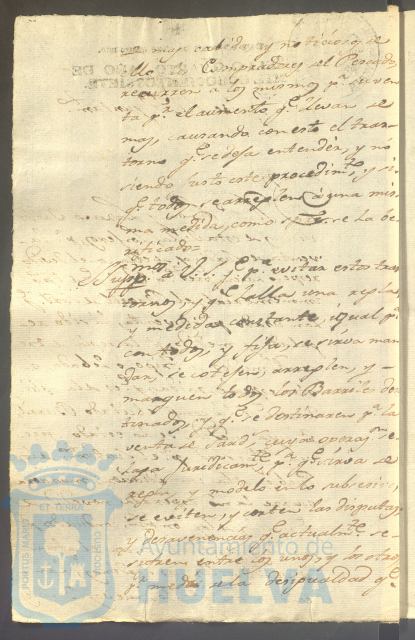 de mas cabida, y noticiosos de
ello los Compradores del Pescado,
recurren a los mismos pª su ven
ta pr. el aumento qe. llevan de
mas, causando con esto el tras
torno qe. se deja entender, y no
siendo justo este procedimto. y si
qe. todos se arreglen a una mis
ma medida, como spre. se ha ve
rificado
Suppco. a V. qe. pª evitar estos tras
tornos, y qe. halla una regla,
y medida constante, igual pª
con todos, y fija, se sirva man
dar, se cotejen, arreglen, y
marquen todos los Barriles des
tinados, y qe. se destinaren pª la
venta de Sard.ª cuya operaon. se
haga Juridicamte. pª qe. sirva de
regla, y modelo en lo subcesivo,
se eviten, y corten las disputas
y desavenencias qe. actualmte. se
sufren entre los unos, y los otros
pr. medio de la desigualdad qe.
Ayuntamiento de
HUELVA
PORTUS MARIS
ET TERRAE
CUSTODIA